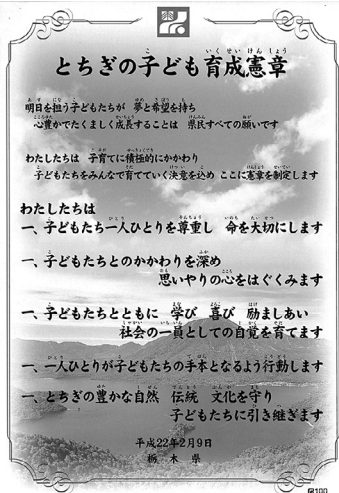 とちぎの子ども育成憲章
明日を担う子どもたちが 夢と希望を持ち
心豊かでたくましく成長することは 県民すべての願いです
わたしたちは 子育てに積極的にかかわり
子どもたちをみんなで育てていく決意を込め ここに憲章を制定します
わたしたちは
一、子どもたち一人ひとりを尊重し 命を大切にします
一、子どもたちとのかかわりを深め
思いやりの心をはぐくみます
一、子どもたちとともに 学び 喜び 励ましあい
社会の一員としての自覚を育てます
一、一人ひとりが子どもたちの手本となるよう行動します
一、とちぎの豊かな自然 伝統 文化を守り
子どもたちに引き継ぎます
平成22年2月9日
栃木県
R100